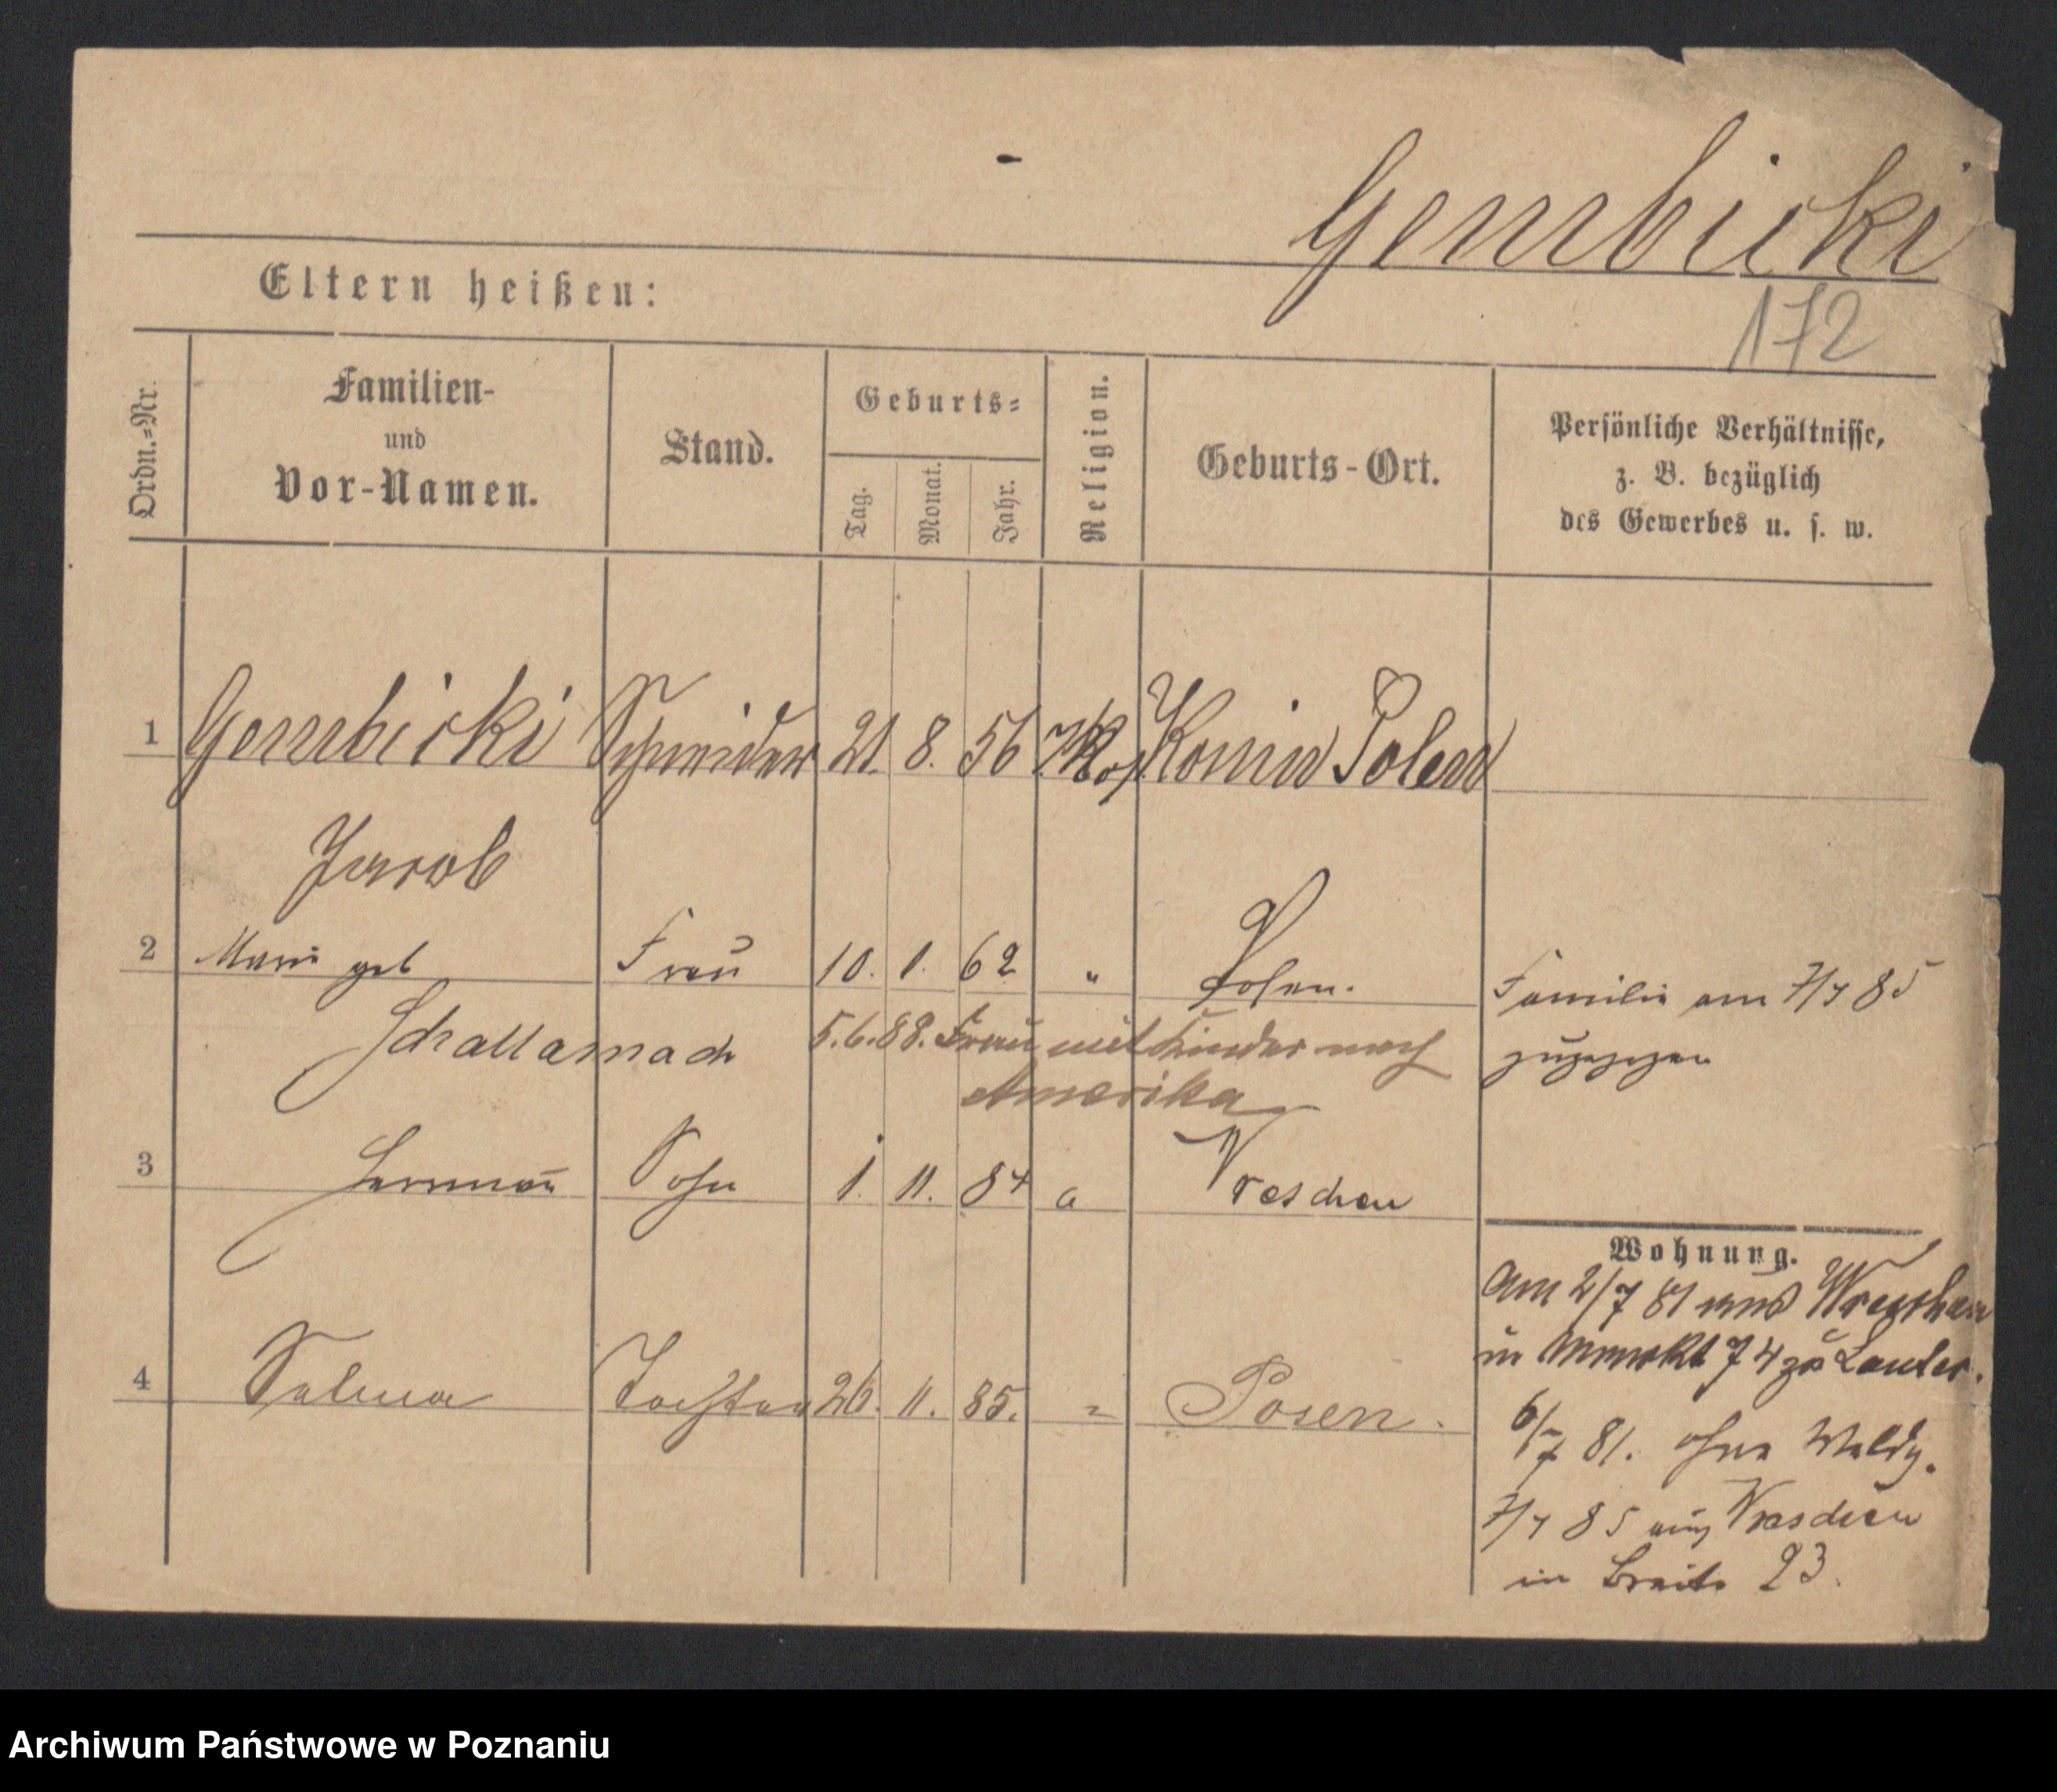 Gembicki
172
Eltern heißen:
Ordn.=Nr.
Familien-
und
Vor-Namen.
Stand.
Geburts=
Tag.
Monat.
Jahr.
Religion.
Geburts-Ort.
Persönliche Verhältnisse,
z. B. bezüglich
des Gewerbes u. s. w.
1 Gembicki Schneider 21. 8. 56 Mos Konin Polen
Jacob
2 Marie geb Frau 10. 1. 62 " Posen.
Schallamach
5.6.88. Frau mit Kinder nach
Amerika
Familie am 7/7 85
zugezogen
3 Herrmann Sohn 1. 11. 84 Wreschen
4 Salma Tochter 26. 11. 85. " Posen.
Wohnung.
Am 2/7 81 aus Wreschen
in 74 zu
6/7 81. ohne Meldg.
7/7 85 aus Wreschen
in Breite 23.
Archiwum Państwowe w Poznaniu